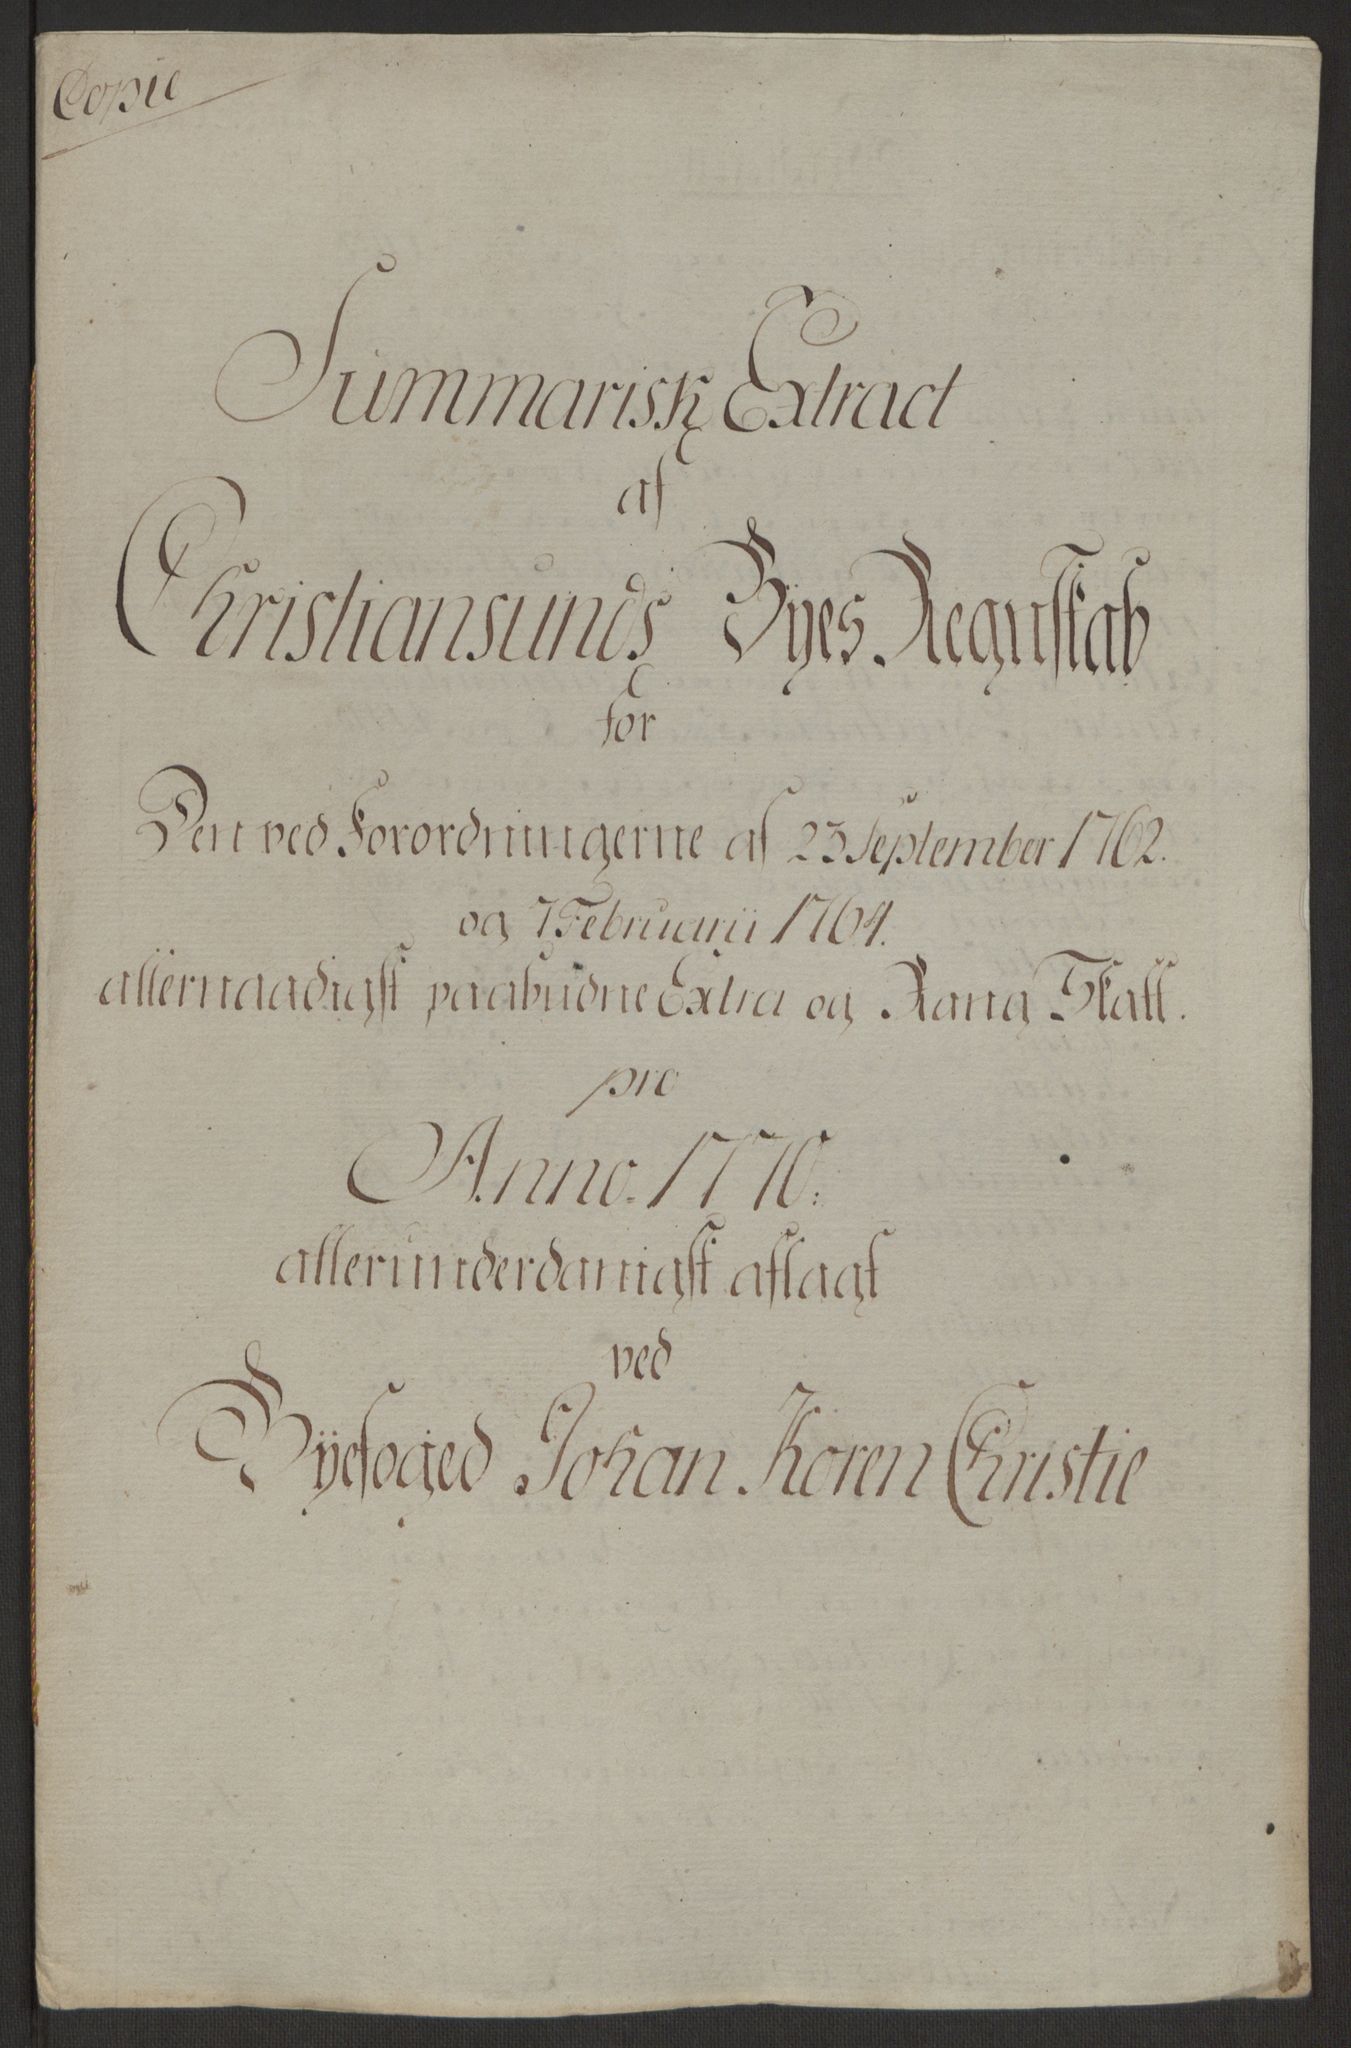 Copie
Summarisk Extract
af
Christiansunds Byes Regnskab
for
Den ved Forordningerne af 23 September 1762.
og 7 Februarii 1764.
allernaadigst paabudne Extra og Rang Skatt.
pro
Anno. 1770.
allerunderdanigst aflagt
ved
Byefoged Johan Koren Christie